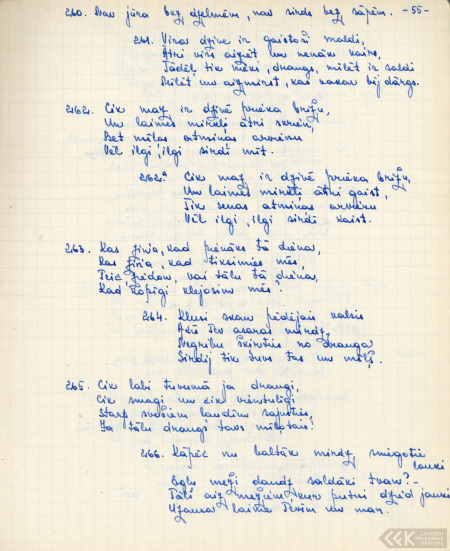 260. Nav jūra bez dzelmēm, nav sirds bez sāpēm. -55-
261. Visa dzīve ir gaistoši maldi,
Ātri viss aiziet un nenāk vairs,
Tādēļ tik mēki, draugs, mīlēt ir saldi
Mīlēt un aizmirst, kas vakar bij dārgs.
262. Cik maz ir dzīvē prieka brīžu,
Un laimes mirkļi ātri skrien,
Bet mīlas atmiņas arvienu
Vēl ilgi, ilgi sirdī mīt.
262.a Cik maz ir dzīvē prieka brīžu,
Un laimes mirkļi ātri gaist,
Tik senas atmiņas arvienu
Vēl ilgi, ilgi sirdī kaist.
263. Kas zina, kad pienāks tā diena,
Kas zina, kad tiksimies mēs,
Teic, ziedon, vai tālu tā diena,
Kad kopīgi klejosim mēs?
264. Klusi skan pēdējais valsis
Acīs Tev asaras mirdz,
Negribu šķirties no drauga
Sirdij tik tuvs tas un mīļš.
265. Cik labi tuvumā ja draugi,
Cik smagi un cik vientulīgi
Starp svešiem ļaudīm sajusties,
Ja tālu draugi tavs mīļotais!
266. Kāpēc nu baltāk mirdz sniegotie
lauki
Ogļu meži daudz saldāki tvan? -
Tāli aiz mežiem, kur putni dzied jauki
Uzausa laime Tevim un man.
LATVIEŠU FOLKLORAS KRĀTUVE